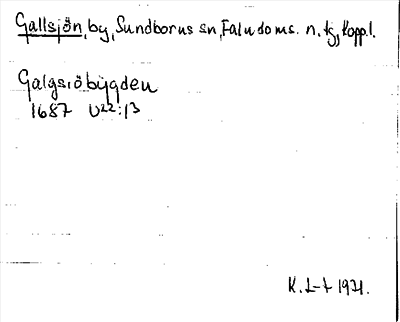 Gallsjön, by, Sundborns sn, Falu doms. n. tj, Kopp.l.
Galgsiöbygden
1687 U22:13
K. L-t 1931.